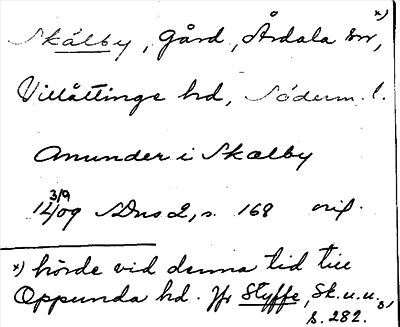 x)
Skälby, gård, Årdala sn,
Villåttinge hd, Söderm. l.
Anunder i Skælby
3/9
1409 SDns 2, s. 168 orig.
x) hörde vid denna tid till
Oppunda hd. Jfr Styffe, Sk.u.u.3,
s. 282.